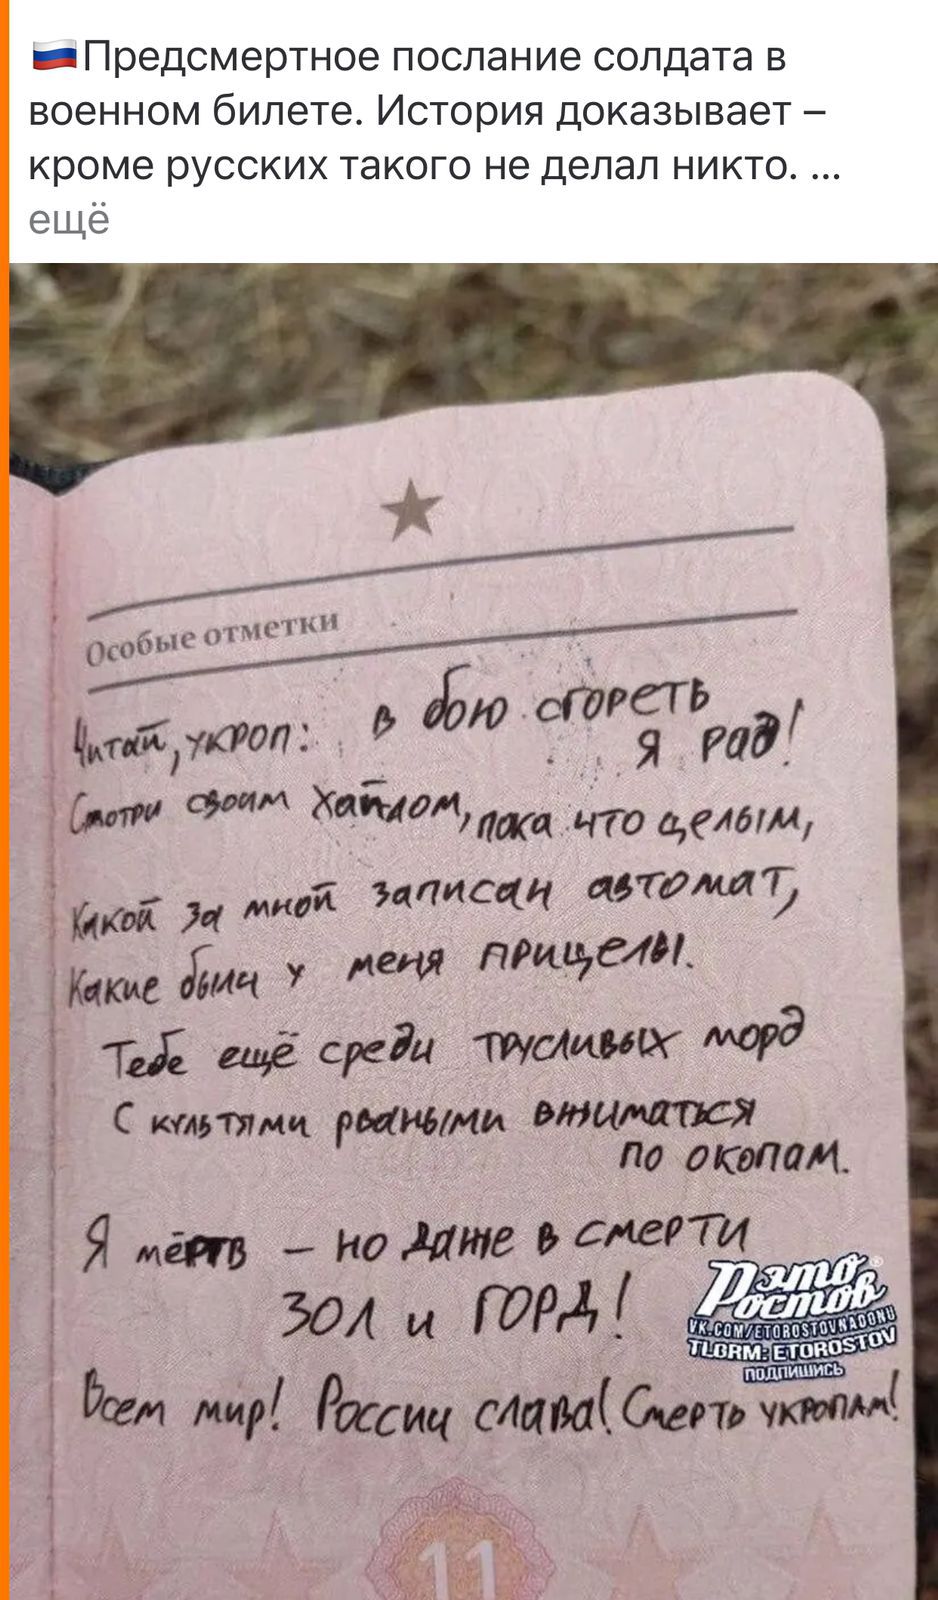 🇷🇺Предсмертное послание солдата в
военном билете. История доказывает –
кроме русских такого не делал никто. ...
ещё
Особые отметки
Читай, укроп: в бою сгореть
я рад!
Смотри своим хайлом, пока что целым,
Какой за мной записан автомат,
Какие были у меня прицелы.
Тебе ещё среди трусливых морд
С культями рваными вжиматься
по окопам.
Я мёртв – но даже в смерти
ЗОЛ и ГОРД!
Всем мир! России слава! Смерть укропам!
Рэто
Ростов®
VK.COM/ETOROSTOVNADONU
TLGRM: ETOROSTOV
ПОДПИШИСЬ
11